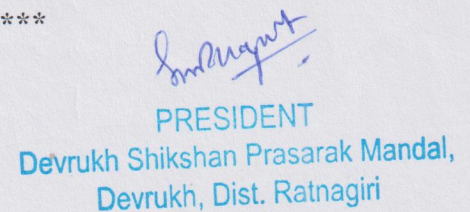 ***
PRESIDENT
Devrukh Shikshan Prasarak Mandal,
Devrukh, Dist. Ratnagiri